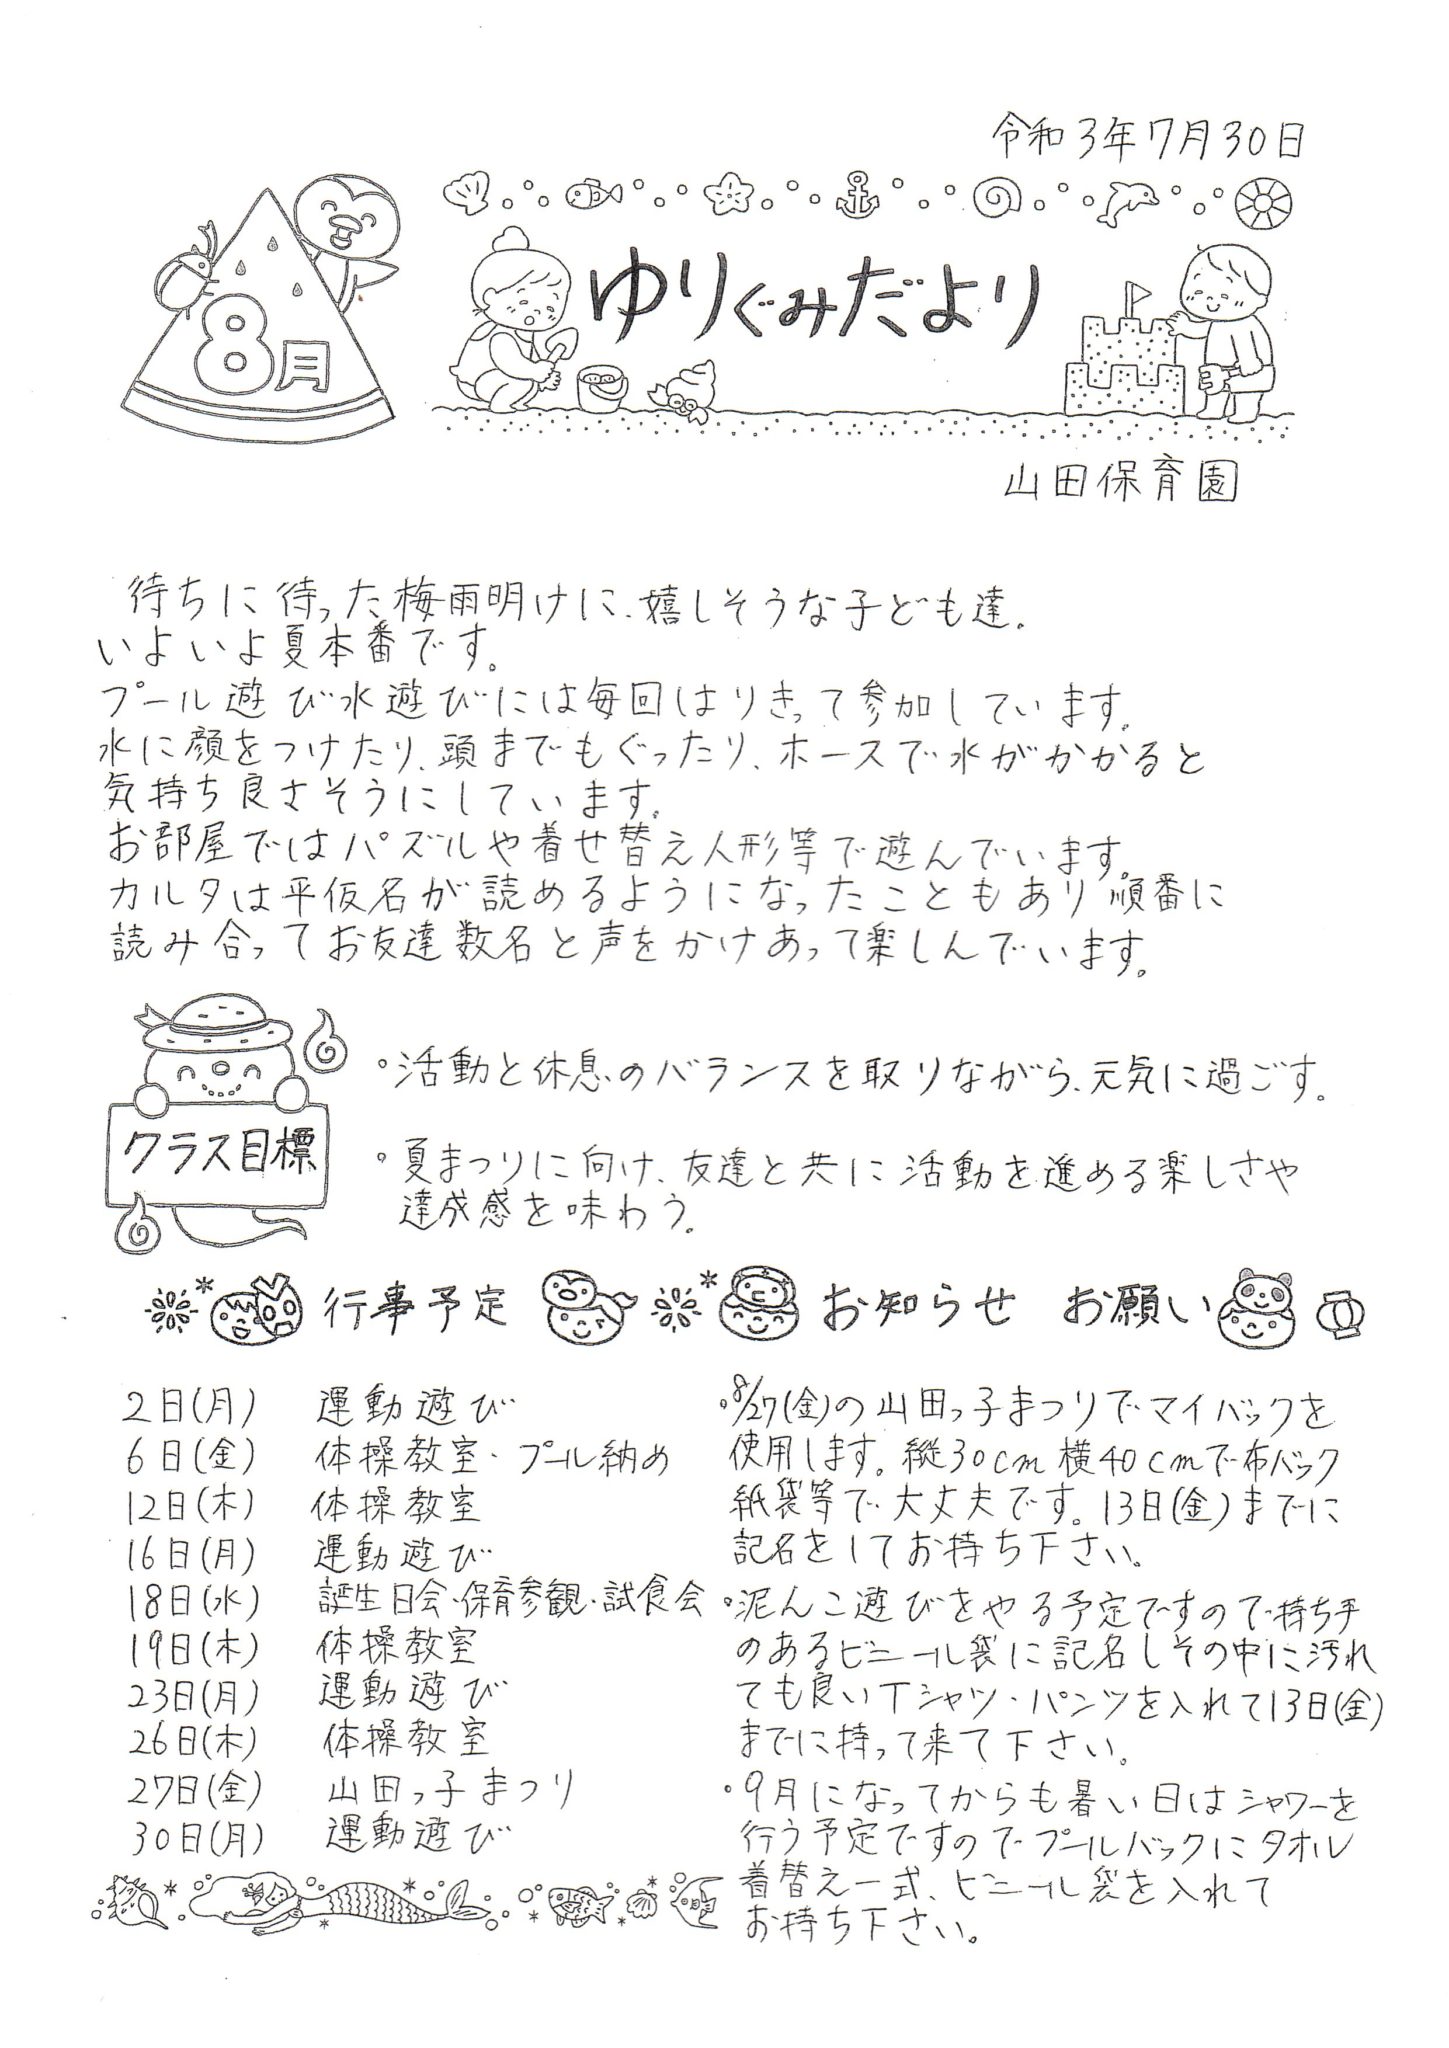 令和3年7月30日
8月
ゆりぐみだより
山田保育園
待ちに待った梅雨明けに、嬉しそうな子ども達。
いよいよ夏本番です。
プール遊び水遊びには毎回はりきって参加しています。
水に顔をつけたり、頭までもぐったり、ホースで水がかかると
気持ち良さそうにしています。
お部屋ではパズルや着せ替え人形等で遊んでいます。
カルタは平仮名が読めるようになったこともあり順番に
読み合ってお友達数名と声をかけあって楽しんでいます。
クラス目標
・活動と休息のバランスを取りながら、元気に過ごす。
・夏まつりに向け、友達と共に活動を進める楽しさや
達成感を味わう。
行事予定
2日(月) 運動遊び
6日(金) 体操教室・プール納め
12日(木) 体操教室
16日(月) 運動遊び
18日(水) 誕生日会・保育参観・試食会
19日(木) 体操教室
23日(月) 運動遊び
26日(木) 体操教室
27日(金) 山田っ子まつり
30日(月) 運動遊び
お知らせ お願い
・8/27(金)の山田っ子まつりでマイバックを
使用します。縦30cm横40cmで布バック
紙袋等で大丈夫です。13日(金)までに
記名をしてお持ち下さい。
・泥んこ遊びをやる予定ですので持ち手
のあるビニール袋に記名しその中に汚れ
ても良いTシャツ・パンツを入れて13日(金)
までに持って来て下さい。
・9月になってからも暑い日はシャワーを
行う予定ですのでプールバックにタオル
着替え一式、ビニール袋を入れて
お持ち下さい。